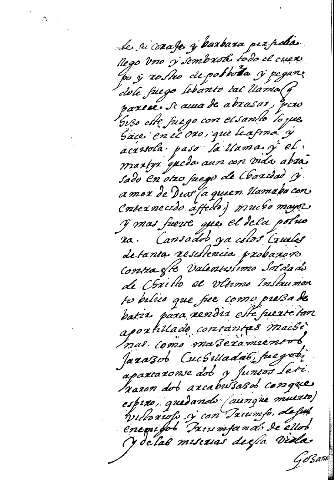 de si coraje y barbara perfidia
llego uno y sembrole todo el cuer
po y rostro de polbora y pegan
dole fuego lebanto tal llama q
parece se avia de abrasar, pero
hizo este fuego con el santo lo que
hace en el oro, que le afina y
acrisola paso la llama y el
martyr quedo aun con vida abra
sado en otro fuego de Charidad y
amor de Dios (a quien llamaba con
enternecido affecto) mucho mayor
y mas fuerte que el de la polvo
ra. Cansados ya estos crueles
de tanta resistencia probaron
contra este Valentissimo Soldado
de Christo el Ultimo Instrumen
to belico que fue como pieza de
batir para rendir este fuerte tan
aportillado con tantas machi
nas. como maderamientos
Jarazos Cuchilladas, fuegos;
apartaronse dos y Juntos le ti
raron dos arcabuzazos con que
espiro, quedando (aunque muerto)
Victorioso y con Triumfo, de sus
enemigos Triumfando de ellos
y de las miserias de esta Vida
Gozan